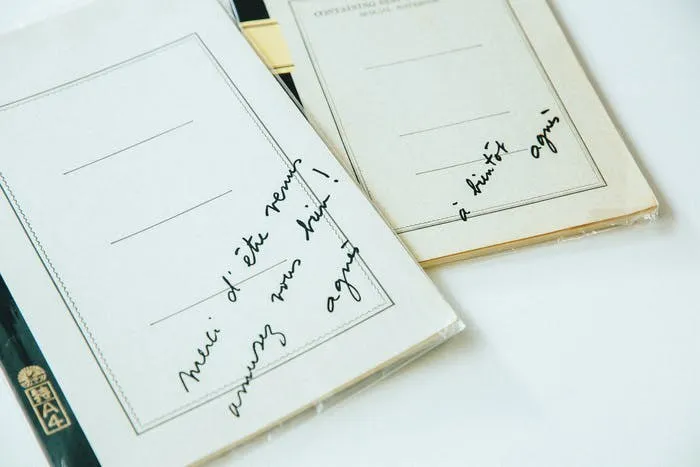 merci d'être venus
amusez vous bien !
agnès
特A4
CONTAINING
SPECIAL
à bientôt
agnès